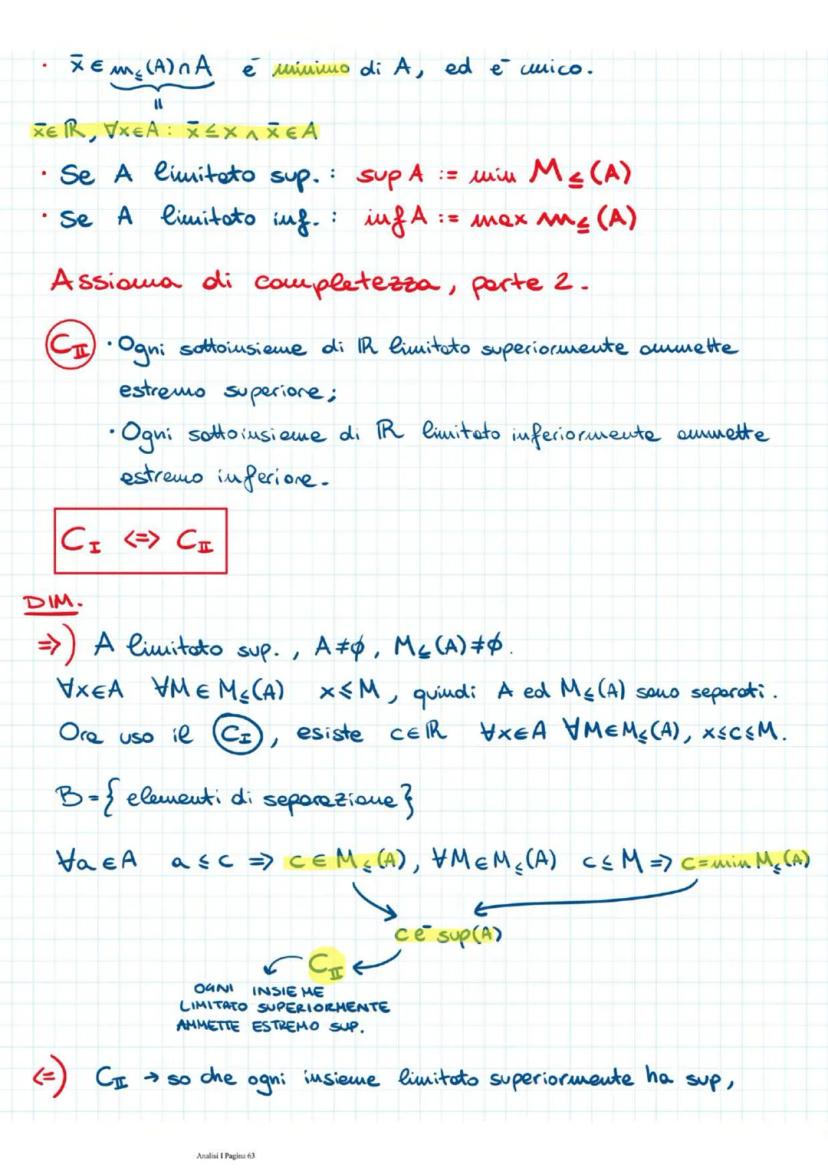 · x̄ ∈ m≤(A)∩A è minimo di A, ed è unico.
=
x̄ ∈ ℝ, ∀x∈A : x̄ ≤ x ∧ x̄ ∈ A
· Se A limitato sup. : sup A := min M≤(A)
· Se A limitato inf. : inf A := max m≤(A)
Assioma di completezza, parte 2.
C_II · Ogni sottoinsieme di ℝ limitato superiormente ammette
estremo superiore;
· Ogni sottoinsieme di ℝ limitato inferiormente ammette
estremo inferiore.
C_I <=> C_II
DIM.
=>) A limitato sup., A≠∅, M≤(A)≠∅.
∀x∈A ∀M∈M≤(A) x≤M, quindi A ed M≤(A) sono separati.
Ora uso il C_I, esiste c∈ℝ ∀x∈A ∀M∈M≤(A), x≤c≤M.
B={ elementi di separazione}
∀a∈A a≤c => c∈M≤(A), ∀M∈M≤(A) c≤M => c=min M≤(A)
c è sup(A)
C_II
OGNI INSIEME
LIMITATO SUPERIORMENTE
AMMETTE ESTREMO SUP.
<=) C_II → so che ogni insieme limitato superiormente ha sup,
Analisi I Pagina 63